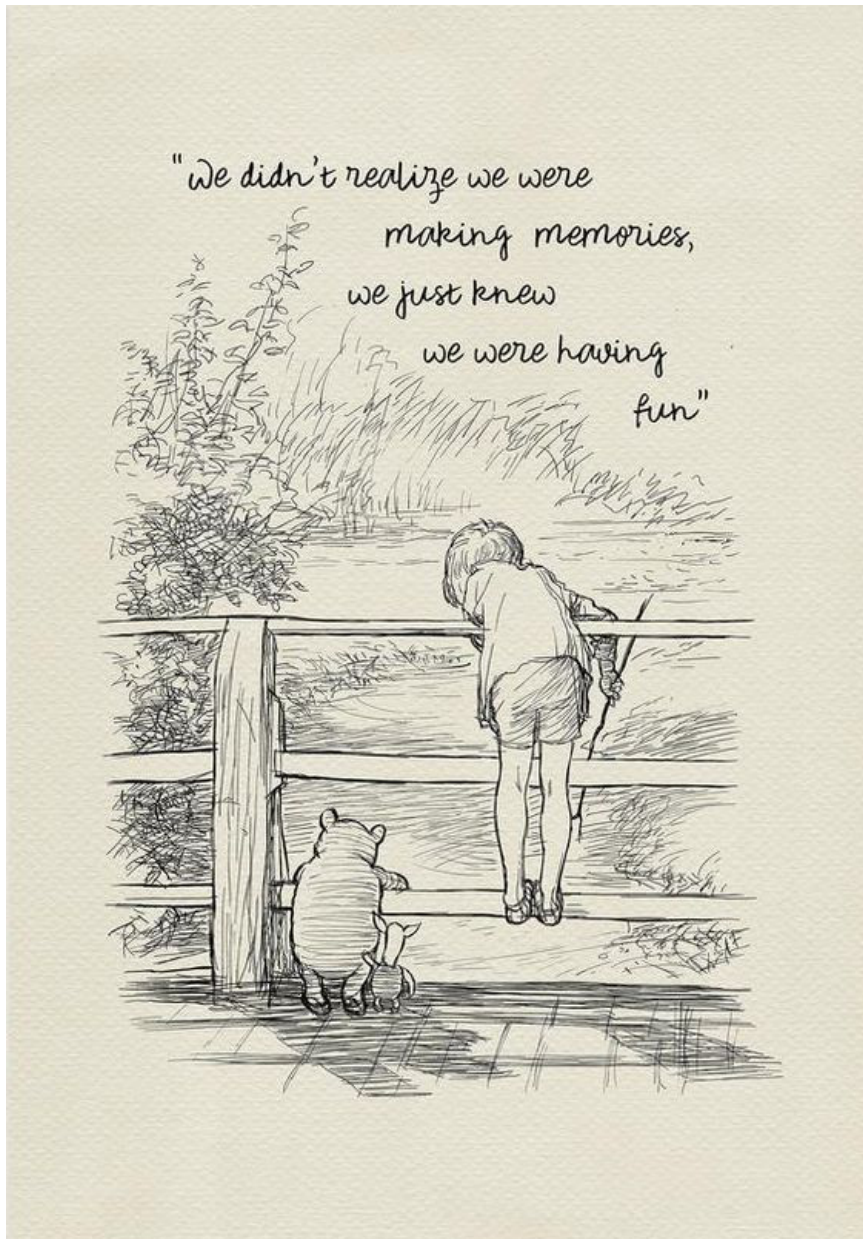 "We didn't realize we were
making memories,
we just knew
we were having
fun"